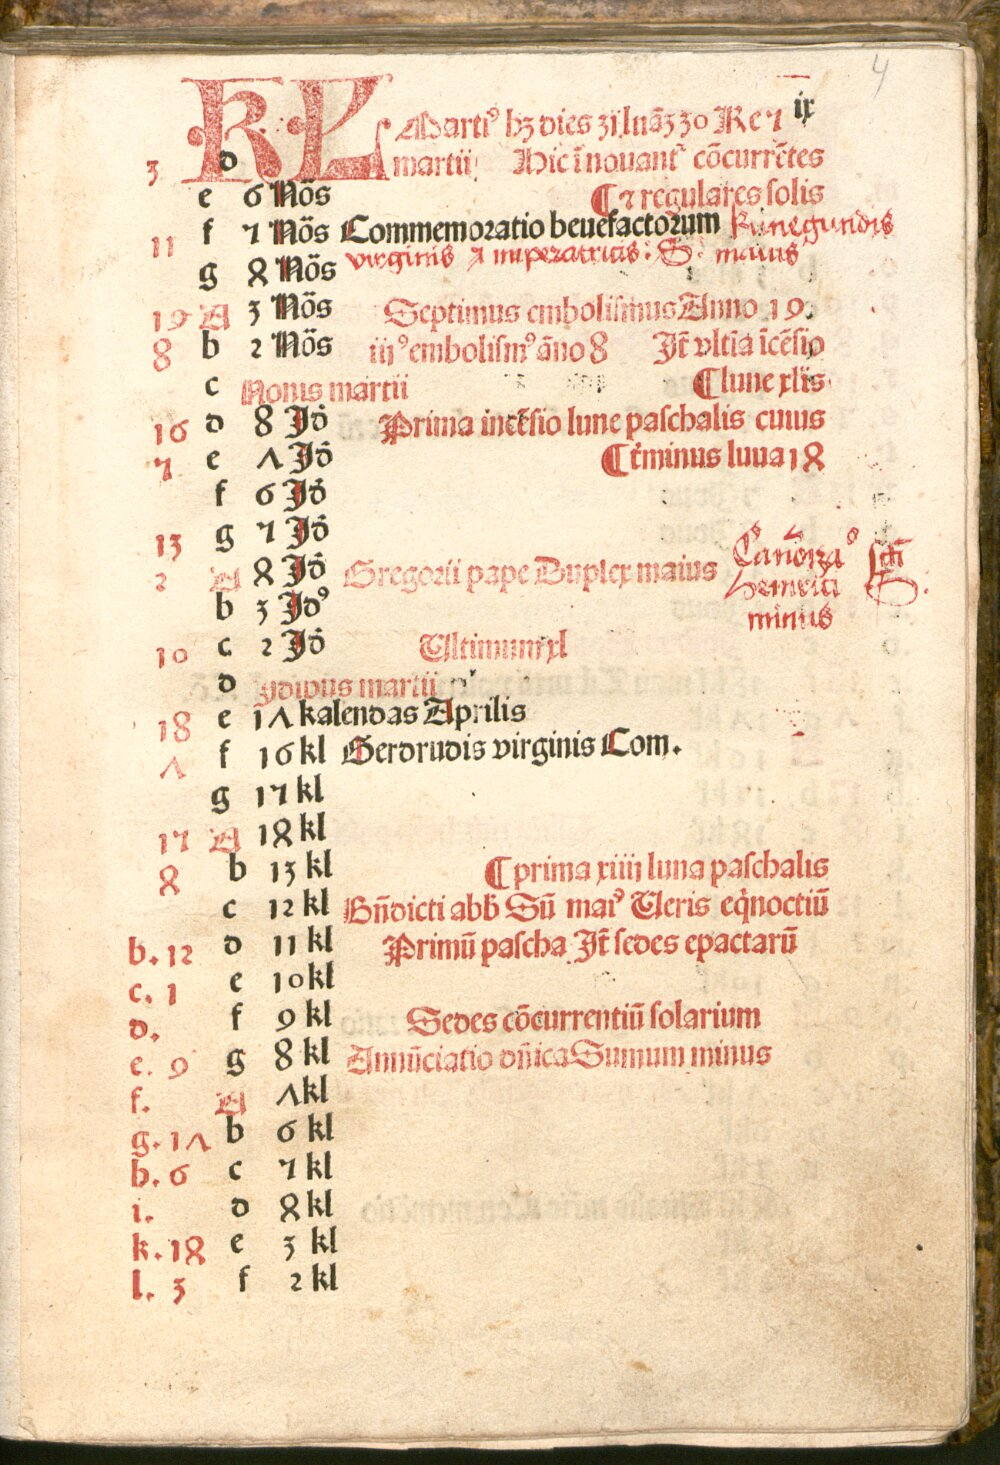 4
KL Marti⁹ hꝫ dies 31 lunā3 30 Re 7 ix
3 d martii Hic īnouant᷑ cōcurrētes
e 6 Nōs ¶ ⁊ regulares solis
11 f 7 Nōs Commemoratio beuefactorum Kunegundis
g 8 Nōs virginis ⁊ imperatricis: S: maius
19 A 3 Nōs Septimus embolismus Anno 19.
8 b 2 Nōs iii⁹ embolism⁹ āno 8 Jt̄ vltīa īcēsio
c Nonis martii ¶ lune xlis
16 d 8 Jd Prima incēsio lune paschalis cuius
7 e Λ Jd ¶ t̄minus luua 18
f 6 Jd
13 g 7 Jd
2 A 8 Jd Gregorii pape Duplex maius Canoīza⁹ sc̄ti
b 3 Jd⁹ heinrici S.
minus
10 c 2 Jd Ultimum xl
d ydivus martii
18 e 1Λ kalendas Aprilis
Λ f 16 kl Gerdrudis virginis Com.
g 17 kl
17 A 18 kl
8 b 13 kl ¶ prima xiiii luna paschalis
c 12 kl Bn̄dicti abb̄ Sū mai⁹ Ueris eq̇noctiū
b. 12 d 11 kl Primū pascha Jt̄ sedes epactarū
c. 1 e 10 kl
d. f 9 kl Sedes cōcurrentiū solarium
e. 9 g 8 kl Annūciatio dn̄ica Sumum minus
f. A Λ kl
g. 1Λ b 6 kl
h. 6 c 7 kl
i. d 8 kl
k. 18 e 3 kl
l. 3 f 2 kl